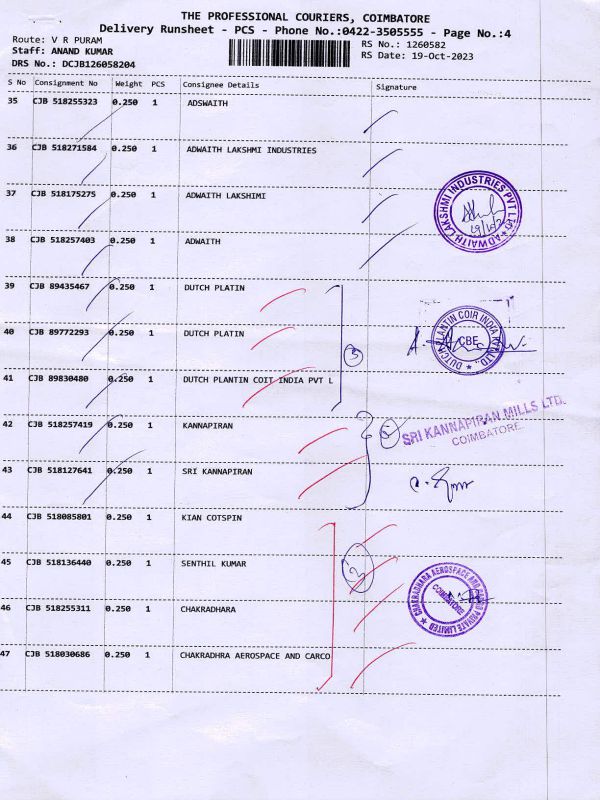 THE PROFESSIONAL COURIERS, COIMBATORE
Delivery Runsheet - PCS - Phone No.:0422-3505555 - Page No.:4
Route: V R PURAM
Staff: ANAND KUMAR
DRS No.: DCJB126058204
RS No.: 1260582
RS Date: 19-Oct-2023
S No Consignment No Weight PCS Consignee Details Signature
35 CJB 518255323 0.250 1 ADSWAITH
36 CJB 518271584 0.250 1 ADWAITH LAKSHMI INDUSTRIES
37 CJB 518175275 0.250 1 ADWAITH LAKSHIMI
ADWAITH LAKSHMI INDUSTRIES PVT LTD
38 CJB 518257403 0.250 1 ADWAITH
39 CJB 89435467 0.250 1 DUTCH PLATIN
40 CJB 89772293 0.250 1 DUTCH PLATIN
3
DUTCH PLANTIN COIR INDIA PVT. LTD.,
CBE
41 CJB 89830480 0.250 1 DUTCH PLANTIN COIT INDIA PVT L
42 CJB 518257419 0.250 1 KANNAPIRAN
SRI KANNAPIRAN MILLS LTD.
COIMBATORE
43 CJB 518127641 0.250 1 SRI KANNAPIRAN
44 CJB 518085801 0.250 1 KIAN COTSPIN
45 CJB 518136440 0.250 1 SENTHIL KUMAR
46 CJB 518255311 0.250 1 CHAKRADHARA
CHAKRADHARA AEROSPACE AND CARGO PRIVATE LIMITED
COIMBATORE
47 CJB 518030686 0.250 1 CHAKRADHRA AEROSPACE AND CARCO